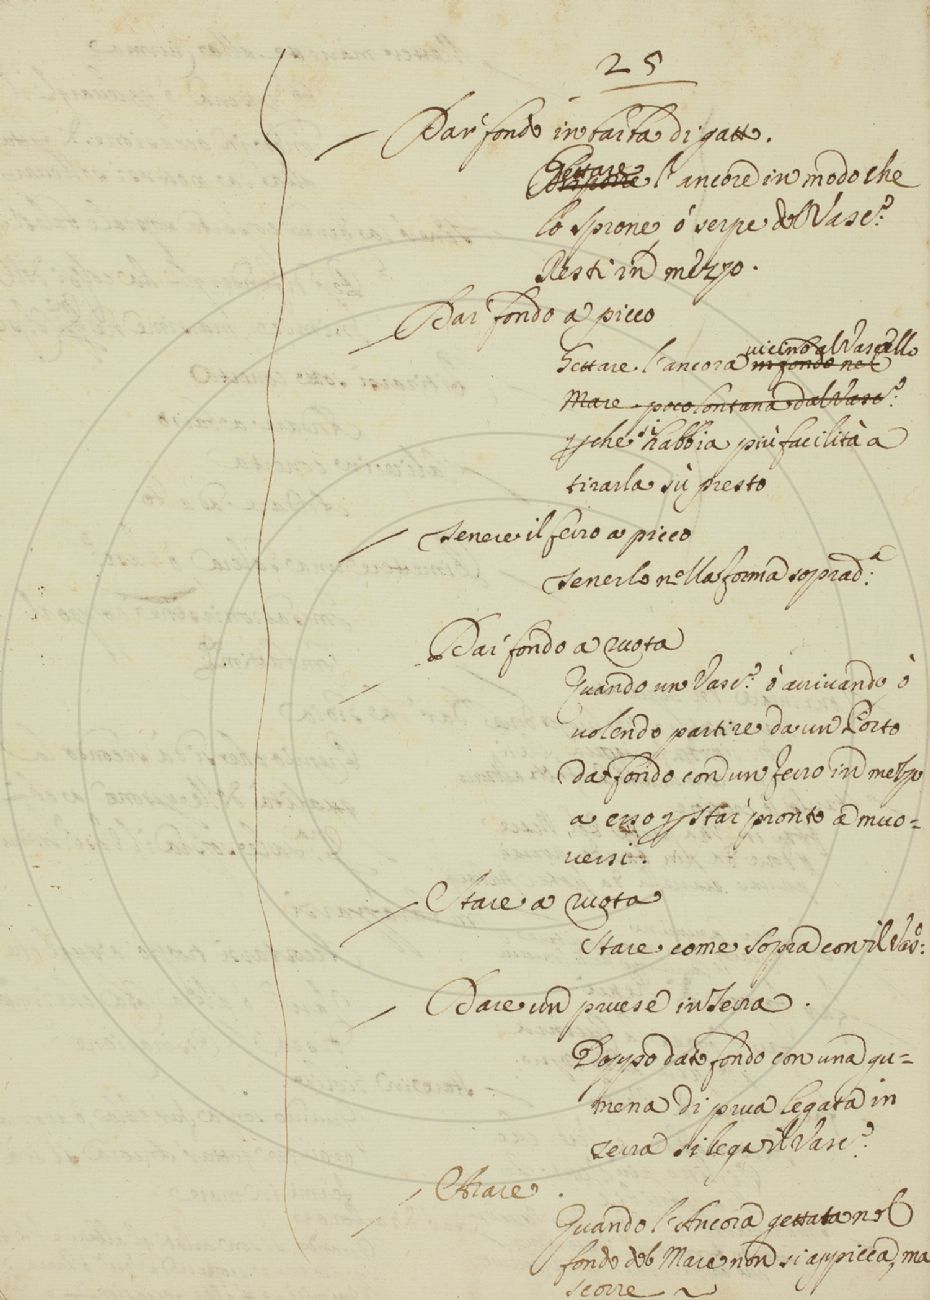 25
Dar fondo in barba di gatto.
Gettare l'ancore in modo che
lo sprone ò serpe del Vasc.º
Resti in mezzo.
Dar fondo a picco
Gettare l'ancora vicino al Vascello in fondo nel
Mare poco lontana dal Vasc.º:
che si habbia più facilità a
tirarla sù presto
Tenere il ferro a picco
Tenerlo nella forma soprad.ª:
Dar fondo a ruota
Quando un Vasc.º ò arrivando, ò
volendo partire da un Porto
da fondo con un ferro in mezzo
a esso p star pronto a muo=
versi:
Stare a ruota
Stare come sopra con il Vas.º:
Dare un provese in Terra.
Doppo dato fondo con una gu=
mena di prua legata in
terra si lega il Vasc.º
Arare.
Quando l'Ancora gettata nel
fondo del Mare non si appicca, ma
scorre